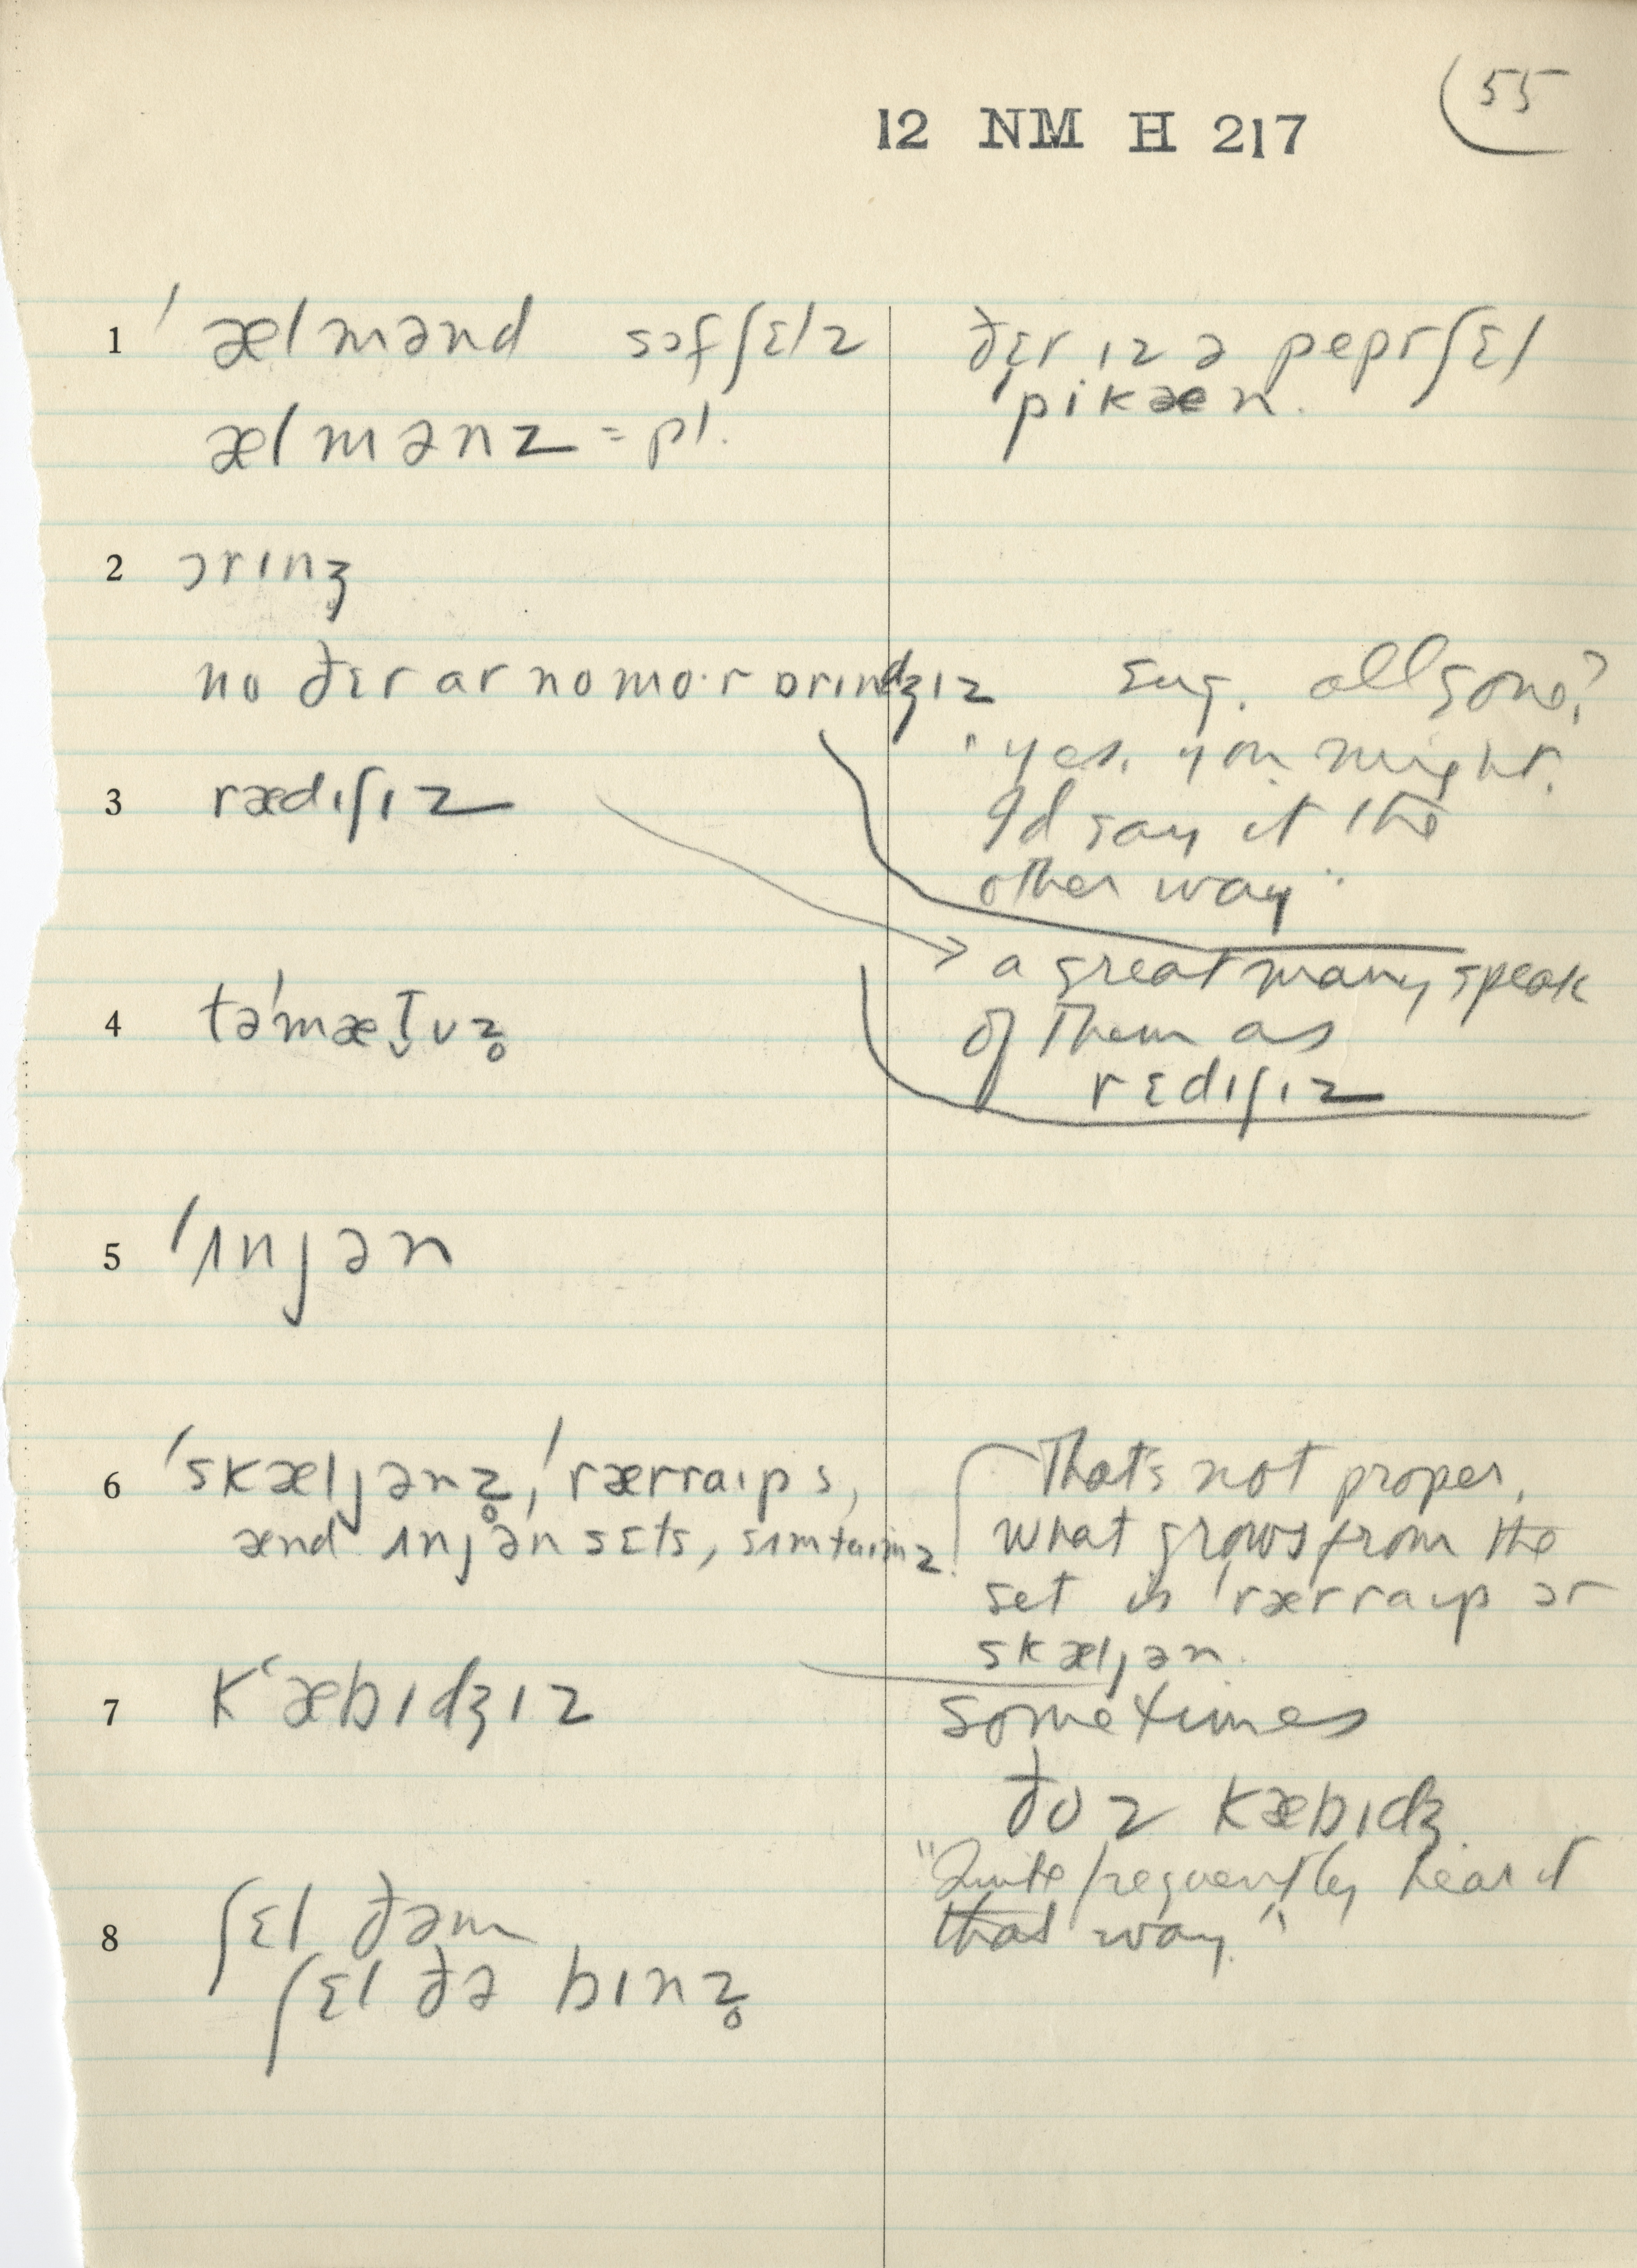 55
12 NM H 217
1 ˈælmənd sɔfʃɛlz
ðɛr ɪz ə peprʃɛl
ˈpikæn.
ælmənz = pl.
2 ɔrɪnʒ
no ðɛr ar no mo·r ɒrɪndʒɪz
sug. all gone?
"yes, you might.
I'd say it the
other way"
3 rædɪʃɪz
a great many speak
of them as
rɛdɪʃɪz
4 təˈmæt̬ʊz̥
5 ˈʌnjən
6 ˈskæljənz̥, ˈrærraɪps,
ænd ʌnjən sɛts, sʌmtaɪmz.
That's not proper,
what grows from the
set is ˈrærraɪp ər
skæljən.
7 Kʻæbɪdʒɪz
sometimes
ðoz kæbɪdʒ.
"Quite frequently hear it
that way."
8 ʃɛl ðəm
ʃɛl ðə binz̥